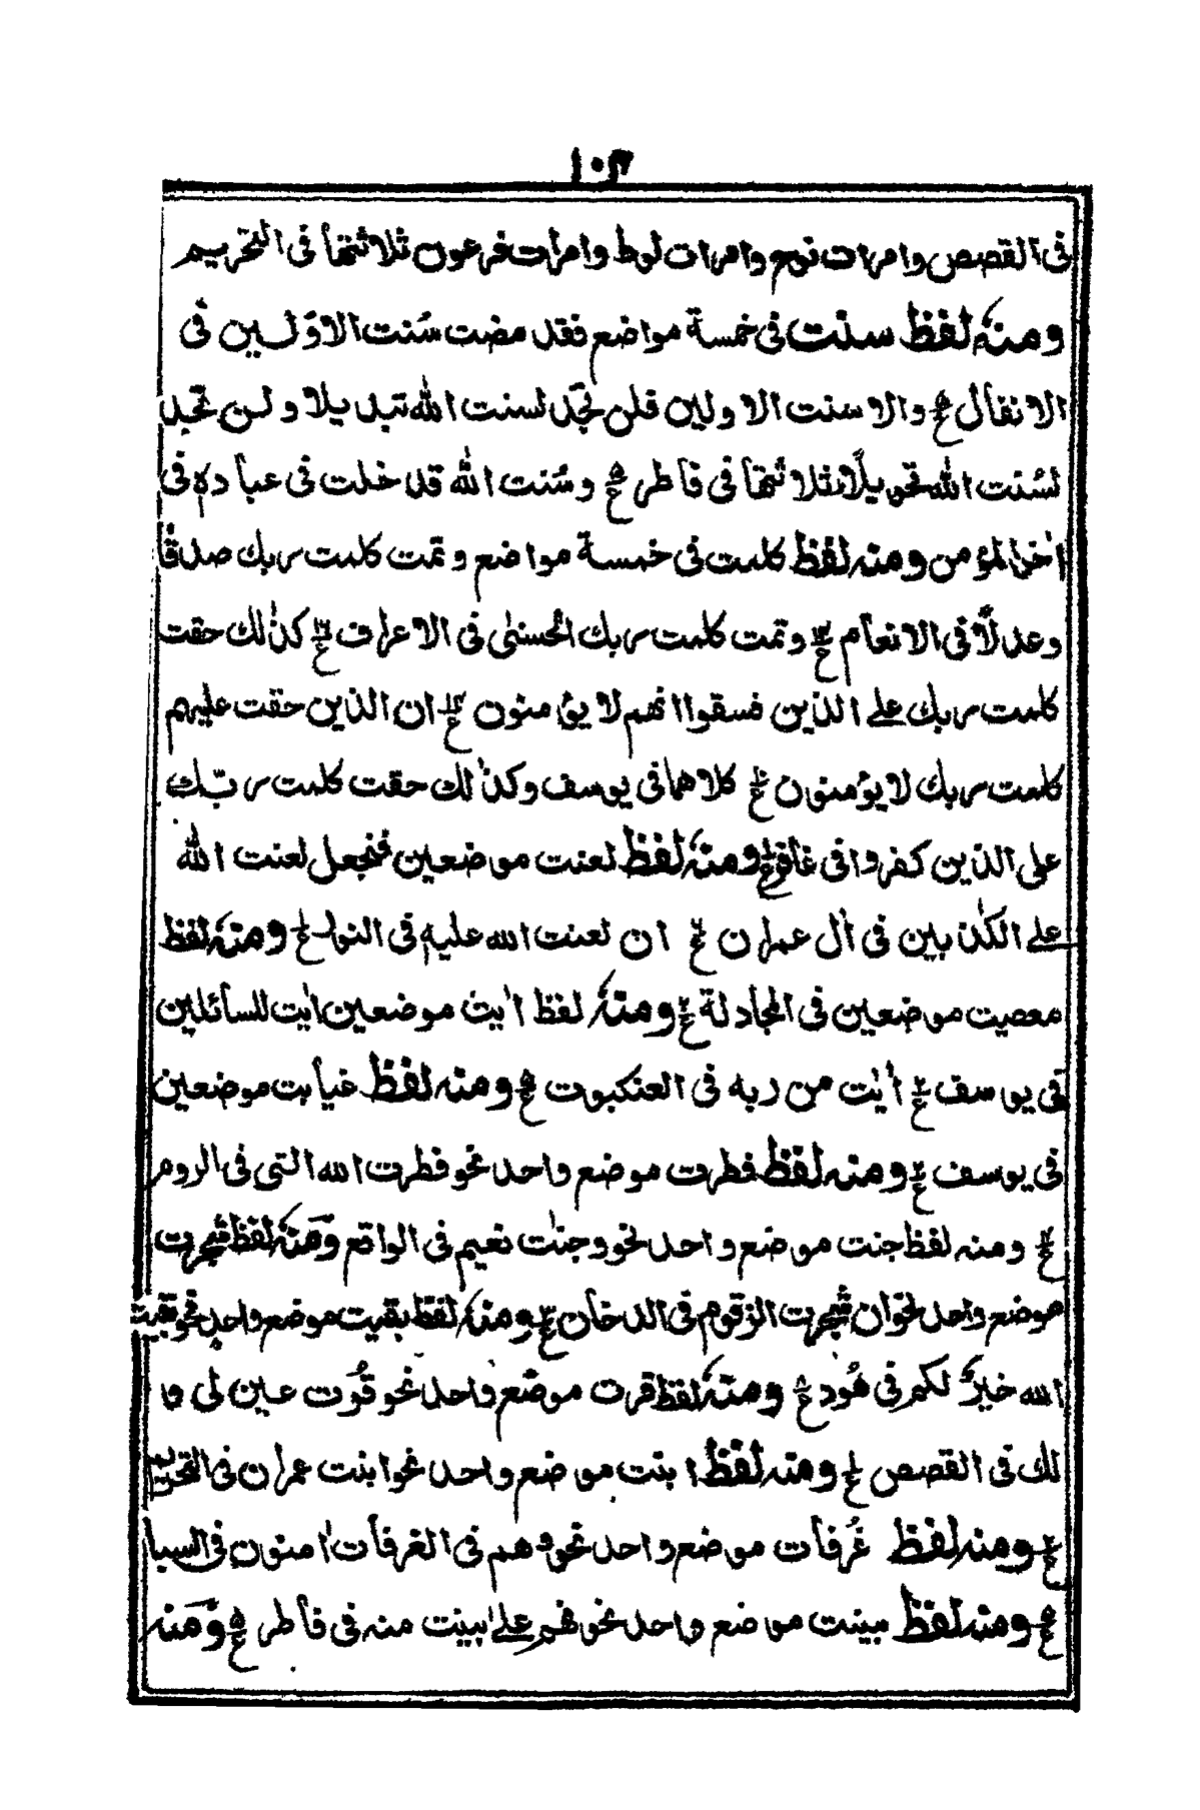 ١٠٣
فى القصص وامرات نوح وامرات لوط وامرات فرعون ثلاثتها فى التحريم
ومنهٗ لفظ سنت فى خمسة مواضع فقد مضت سُنت الاوّلـين فى
الانفال ع والا سنت الاولين فلن تجد لسنت الله تبديلا ولـن تجد
لسُنت الله تحويلًا ثلاثتها فى فاطر ع وسُنت الله قد خلت فى عباده فى
اٰخر المؤمن ومنه لفظ كلمت فى خمسة مواضع وتمت كلمت ربك صدقًا
وعدلًا فى الانعام ع وتمت كلمت ربك الحسنىٰ فى الاعراف ع كذٰلك حقت
كلمت ربك علے الذين فسقوا انهم لا يؤمنون ع ان الذين حقت عليهم
كلمت ربك لا يؤمنون ع كلاهما فى يوسف وكذٰلك حقت كلمت ربّك
على الذين كفروا فى غافر ع ومنهٗ لفظ لعنت موضعين فنجعل لعنت الله
علے الكٰذبين فى اٰل عمران ع ان لعنت الله عليه فى النور ع ومنهٗ لفظ
معصيت موضعين فى المجادلة ع ومنهٗ لفظ اٰيت موضعين اٰيت للسائلين
فى يوسف ع اٰيٰت من ربه فى العنكبوت ع ومنه لفظ غيابت موضعين
فى يوسف ع ومنه لفظ فطرت موضع واحد نحو فطرت الله التى فى الروم
ع ومنه لفظ جنت موضع واحد نحو وجنٰت نعيم فى الواقع ومنهٗ لفظ شجرت
موضع واحد نحو ان شجرت الزقوم فى الدخان ع ومنهٗ لفظ بقيت موضع واحد نحو بقيت
الله خيرٌ لكم فى هُود ع ومنهٗ لفظ قرت موضع واحد نحو قُرت عين لى و
لك فى القصص ع ومنه لفظ ابنت موضع واحد نحو ابنت عمران فى التحريم
ع ومنه لفظ غُرفات موضع واحد نحو وهم فى الغرفات اٰمنون فى السبا
ع ومنه لفظ بينت موضع واحد نحو فهم علےٰ بينت منه فى فاطر ع ومنه